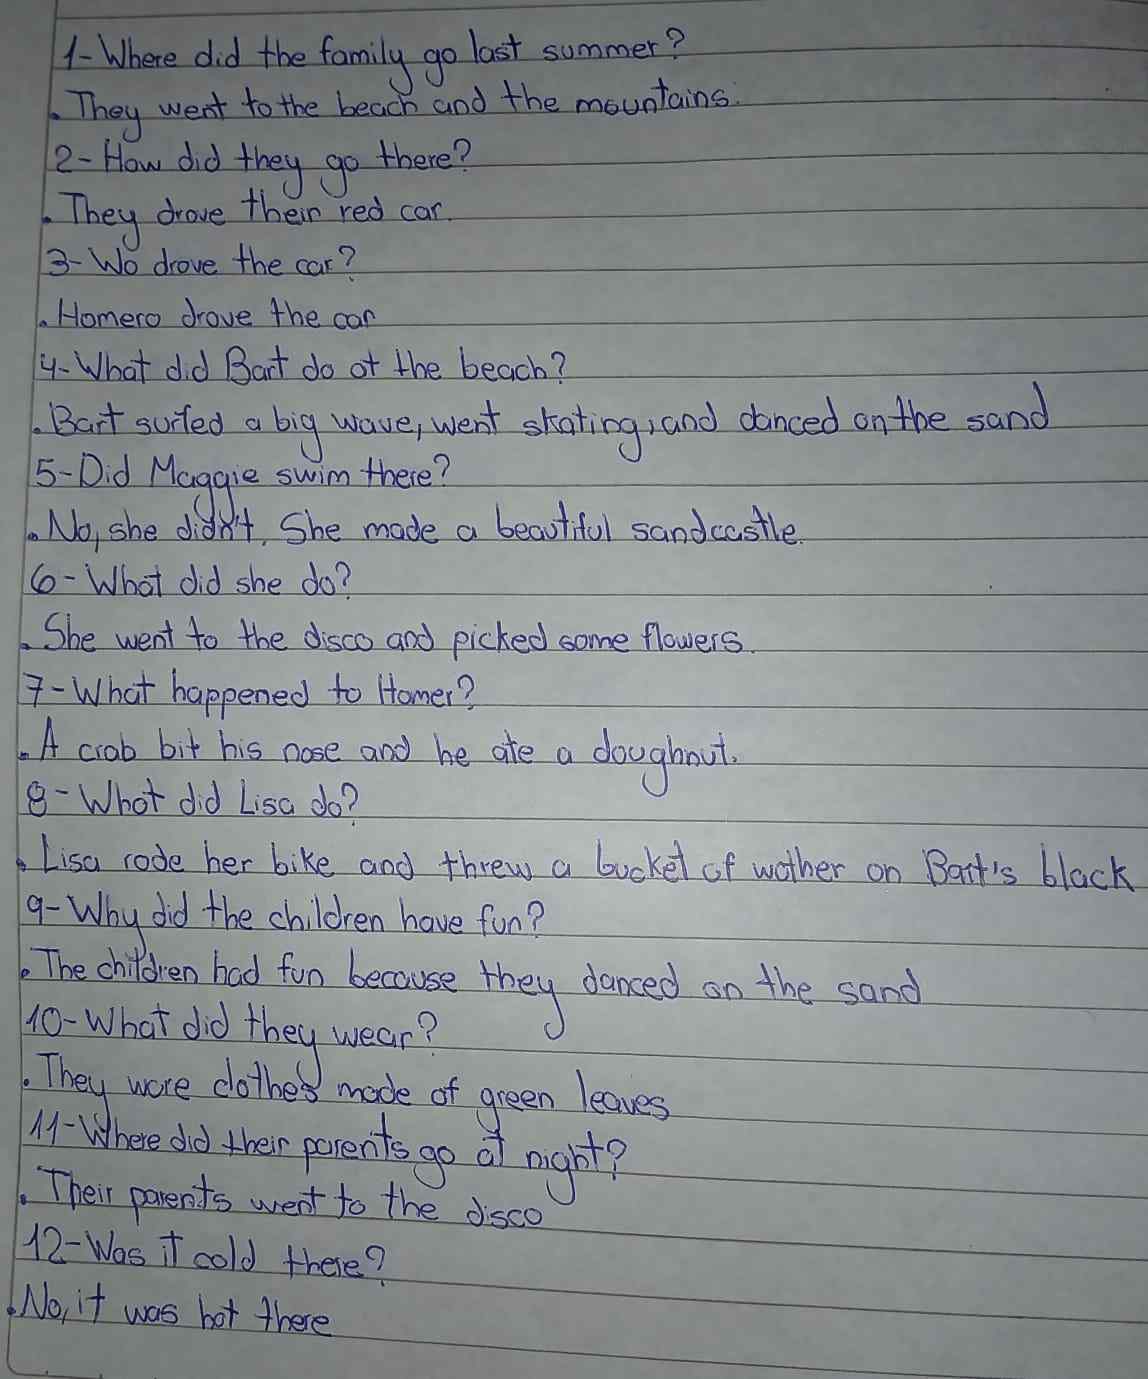 1- Where did the family go last summer?
. They went to the beach and the mountains.
2- How did they go there?
. They drove their red car.
3- Wo drove the car?
. Homero drove the car
4- What did Bart do at the beach?
. Bart surfed a big wave, went skating, and danced on the sand
5- Did Maggie swim there?
. No, she didn't. She made a beautiful sandcastle.
6- What did she do?
. She went to the disco and picked some flowers.
7- What happened to Homer?
. A crab bit his nose and he ate a doughnut.
8- What did Lisa do?
. Lisa rode her bike and threw a bucket of wather on Bart's black
9- Why did the children have fun?
. The children had fun because they danced on the sand
10- What did they wear?
. They wore clothes made of green leaves
11- Where did their parents go at night?
. Their parents went to the disco
12- Was it cold there?
. No, it was hot there